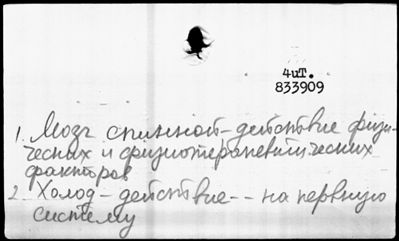 4иТ.
833909
1. Мозг спинной - действие физи-
ческих и физиотерапевтических
факторов
2. Холод - действие - - на нервную
систему